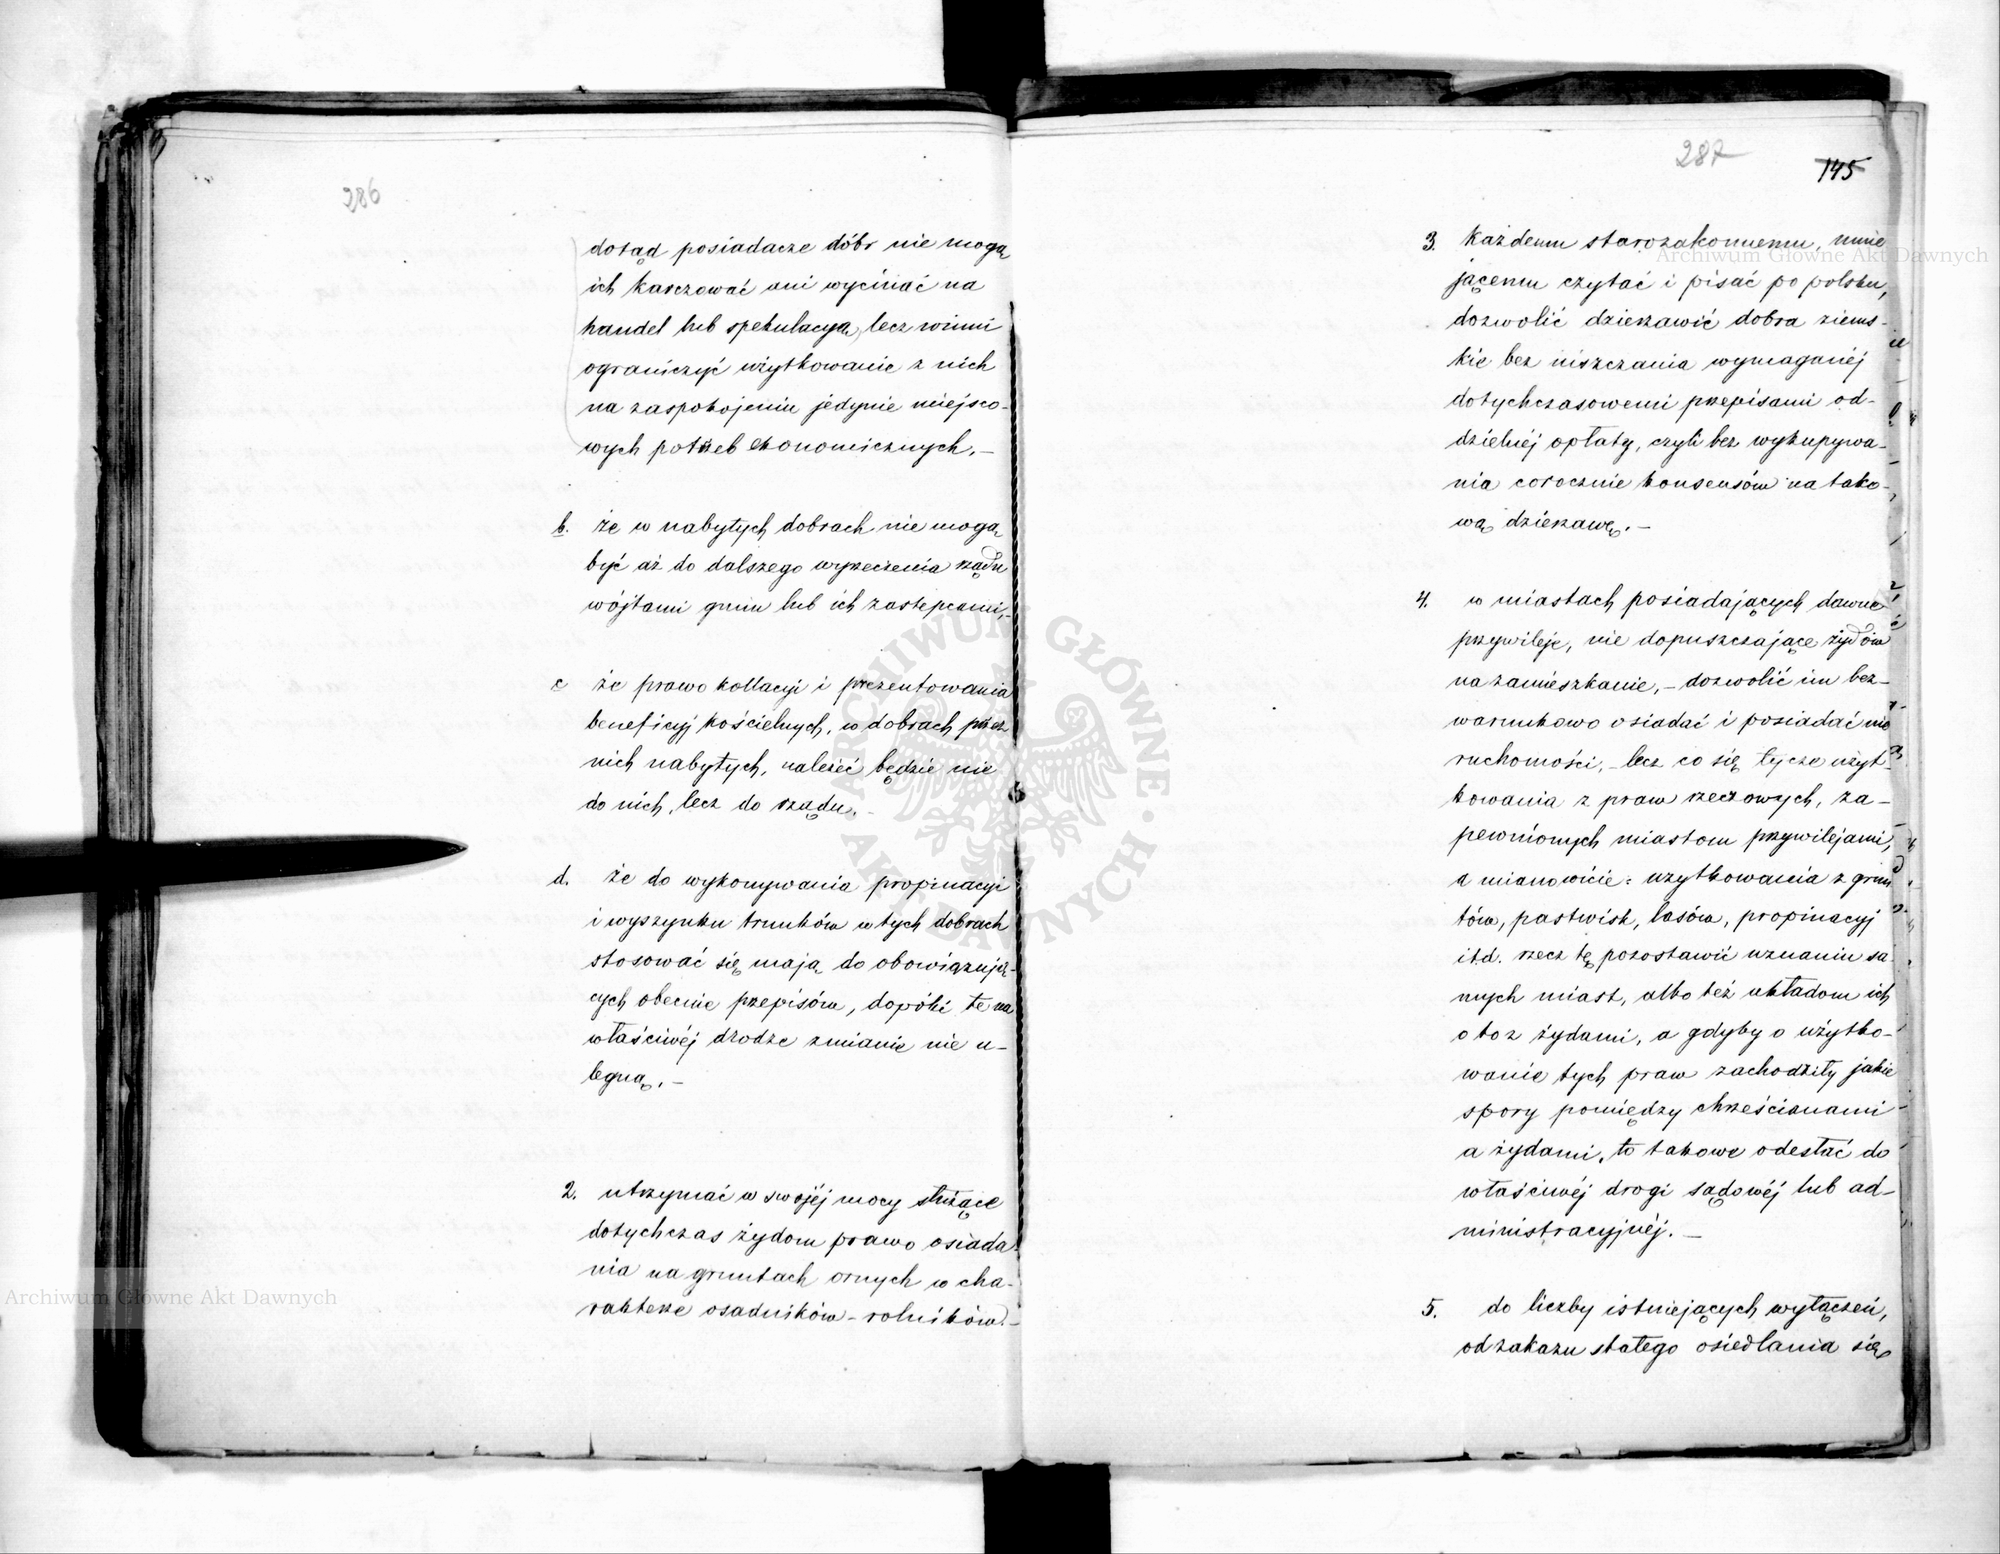 286
dotąd posiadacze dóbr nie mogą
ich karczować ani wycinać na
handel lub spekulacyą, lecz winni
ograniczyć użytkowanie z nich
na zaspokojeniu jedynie miejsco-
wych potrzeb ekonomicznych. –
b. że w nabytych dobrach nie mogą
być aż do dalszego wyrzeczenia rządu
wójtami gmin lub ich zastępcami,–
c że prawo kollacyi i prezentowania
beneficyj kościelnych, w dobrach przez
nich nabytych, należeć będzie nie
do nich, lecz do rządu. –
d. że do wykonywania propinacyi
i wyszynku trunków w tych dobrach
stosować się mają do obowiązują-
cych obecnie przepisów, dopóki te na
właściwéj drodze zmianie nie u-
legną. –
2. utrzymać w swojéj mocy służące
dotychczas żydom prawo osiada-
nia na gruntach ornych w cha-
rakterze osadników – rolników. –
287
145
3. każdemu starozakonnemu, umie
jącemu czytać i pisać po polsku,
dozwolić dzierżawić dobra ziems-
kie bez uiszczania wymaganéj
dotychczasowemi przepisami od-
dzielnéj opłaty, czyli bez wykupywa-
nia corocznie konsensów na tako-
wą dzierżawę. –
4. w miastach posiadających dawne
przywileje, nie dopuszczające żydów
na zamieszkanie, – dozwolić im bez-
warunkowo osiadać i posiadać nie
ruchomości, – lecz co się tycze użyt-
kowania z praw rzeczowych, za-
pewnionych miastom przywilejami,
a mianowicie: użytkowania z grun
tów, pastwisk, lasów, propinacyj
itd. rzecz tę pozostawić uznaniu sa-
mych miast, albo też układom ich
o to z żydami, a gdyby o użytko-
wanie tych praw zachodziły jakie
spory pomiędzy chrześcianami
a żydami, to takowe odesłać do
właściwéj drogi sądowéj lub ad-
ministracyjnéj. –
5. do liczby istniejących wyłączeń,
od zakazu stałego osiedlania się
Archiwum Główne Akt Dawnych
Archiwum Główne Akt Dawnych
ARCHIWUM GŁÓWNE AKT DAWNYCH